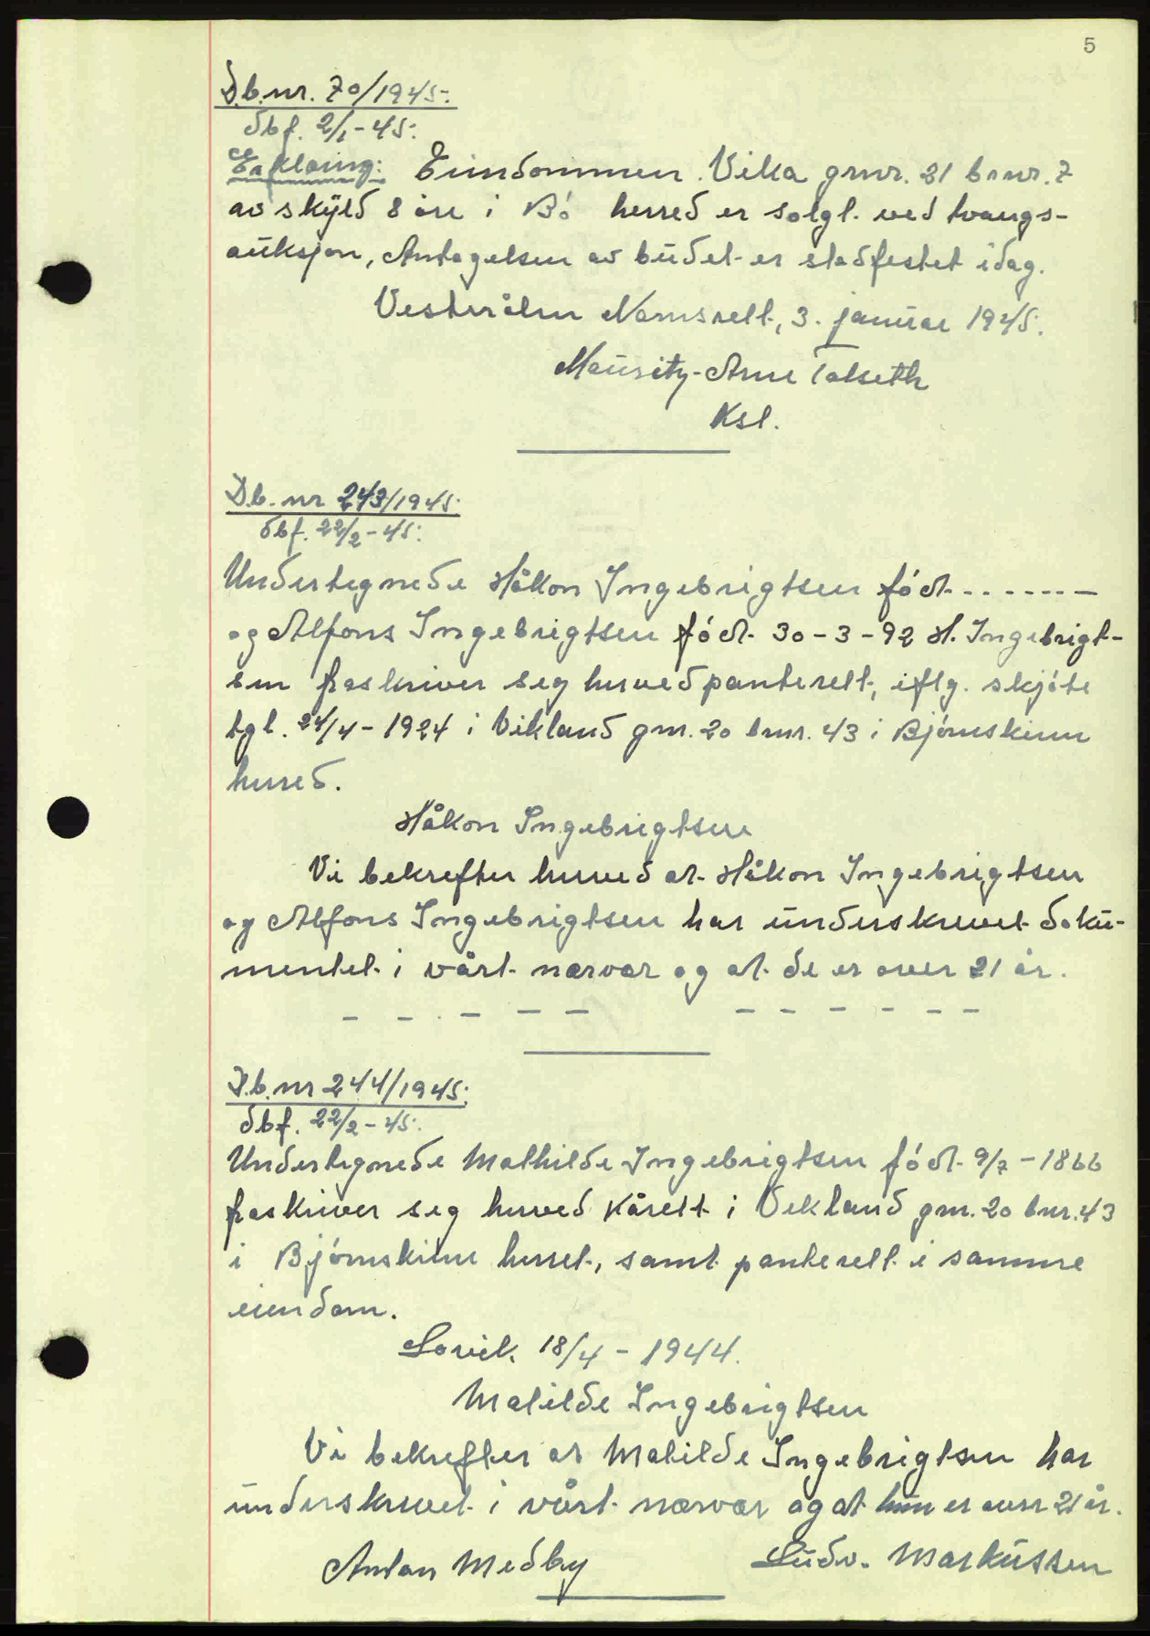 5
D.b.nr. 70/1945.
dbf. 2/1-45.
Erklæring: Eiendommen Vika grnr. 21 brnr. 7
av skyld 8 øre i Bø herred er solgt ved tvangs-
auksjon, Antagelsen av budet er stadfestet idag.
Vesterålen Namsrett, 3. januar 1945.
Mauritz-Arne Talseth
Kst.
D.b. nr 243/1945.
dbf. 22/2-45.
Undertegnede Håkon Ingebrigtsen født -------
og Alfons Ingebrigtsen født 30-3-92 H. Ingebrigt-
sen fraskriver seg herved panterett, iflg. skjøte
tgl. 24/4-1924 i Vikland gnr. 20 bnr. 43 i Bjørnskinn
herred.
Håkon Ingebrigtsen
Vi bekrefter herved at Håkon Ingebrigtsen
og Alfons Ingebrigtsen har underskrevet doku-
mentet i vårt nærvær og at de er over 21 år.
- - - - - - - - - - -
D.b. nr 244/1945.
dbf. 22/2-45.
Undertegnede Mathilde Ingebrigtsen født 9/7-1866
fraskriver seg herved kårett i Vikland gnr. 20 bnr. 43
i Bjørnskinn herret, samt panterett i samme
eiendom.
Lovik 18/4-1944.
Matilde Ingebrigtsen
Vi bekrefter at Matilde Ingebrigtsen har
underskrevet i vårt nærvær og at hun er over 21 år.
Anton Medby Ludv. Markussen